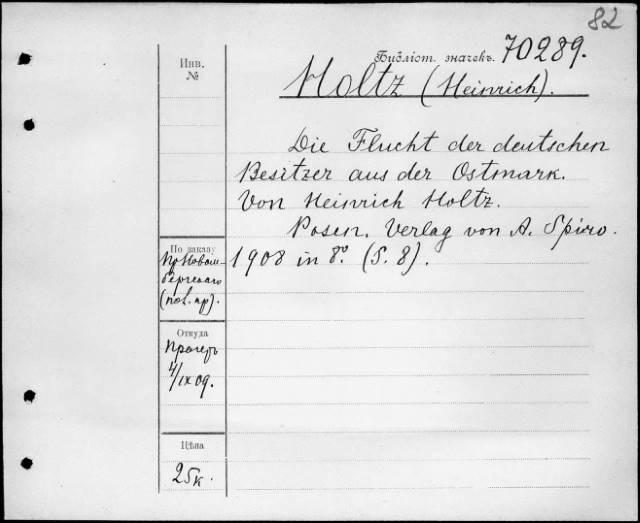 82
Инв.
№
Библіот. значекъ. 70289.
Holtz (Heinrich).
Die Flucht der deutschen
Besitzer aus der Ostmark.
Von Heinrich Holtz.
Posen. Verlag von A. Spiro.
1908 in 8º. (S. 8).
По заказу
Откуда
4/IX 09.
Цѣна
25к.